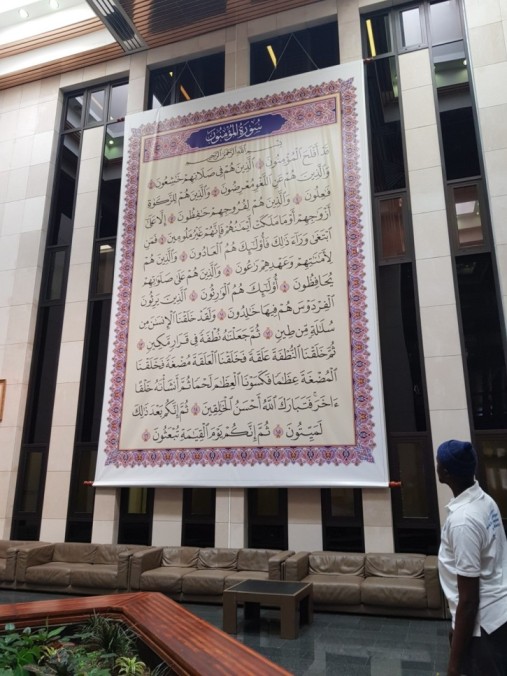 سُورَةُ المُؤْمِنُونَ
بِسْمِ اللَّهِ الرَّحْمَٰنِ الرَّحِيمِ
قَدْ أَفْلَحَ الْمُؤْمِنُونَ ۝ الَّذِينَ هُمْ فِي صَلَاتِهِمْ خَاشِعُونَ ۝
وَالَّذِينَ هُمْ عَنِ اللَّغْوِ مُعْرِضُونَ ۝ وَالَّذِينَ هُمْ لِلزَّكَوٰةِ
فَاعِلُونَ ۝ وَالَّذِينَ هُمْ لِفُرُوجِهِمْ حَافِظُونَ ۝ إِلَّا عَلَىٰ
أَزْوَاجِهِمْ أَوْ مَا مَلَكَتْ أَيْمَانُهُمْ فَإِنَّهُمْ غَيْرُ مَلُومِينَ ۝ فَمَنِ
ابْتَغَىٰ وَرَاءَ ذَٰلِكَ فَأُولَٰئِكَ هُمُ الْعَادُونَ ۝ وَالَّذِينَ هُمْ
لِأَمَانَاتِهِمْ وَعَهْدِهِمْ رَاعُونَ ۝ وَالَّذِينَ هُمْ عَلَىٰ صَلَوَاتِهِمْ
يُحَافِظُونَ ۝ أُولَٰئِكَ هُمُ الْوَارِثُونَ ۝ الَّذِينَ يَرِثُونَ
الْفِرْدَوْسَ هُمْ فِيهَا خَالِدُونَ ۝ وَلَقَدْ خَلَقْنَا الْإِنسَانَ مِن
سُلَالَةٍ مِّن طِينٍ ۝ ثُمَّ جَعَلْنَاهُ نُطْفَةً فِي قَرَارٍ مَّكِينٍ ۝
ثُمَّ خَلَقْنَا النُّطْفَةَ عَلَقَةً فَخَلَقْنَا الْعَلَقَةَ مُضْغَةً فَخَلَقْنَا
الْمُضْغَةَ عِظَامًا فَكَسَوْنَا الْعِظَامَ لَحْمًا ثُمَّ أَنشَأْنَاهُ خَلْقًا
ءَاخَرَ فَتَبَارَكَ اللَّهُ أَحْسَنُ الْخَالِقِينَ ۝ ثُمَّ إِنَّكُم بَعْدَ ذَٰلِكَ
لَمَيِّتُونَ ۝ ثُمَّ إِنَّكُمْ يَوْمَ الْقِيَامَةِ تُبْعَثُونَ ۝